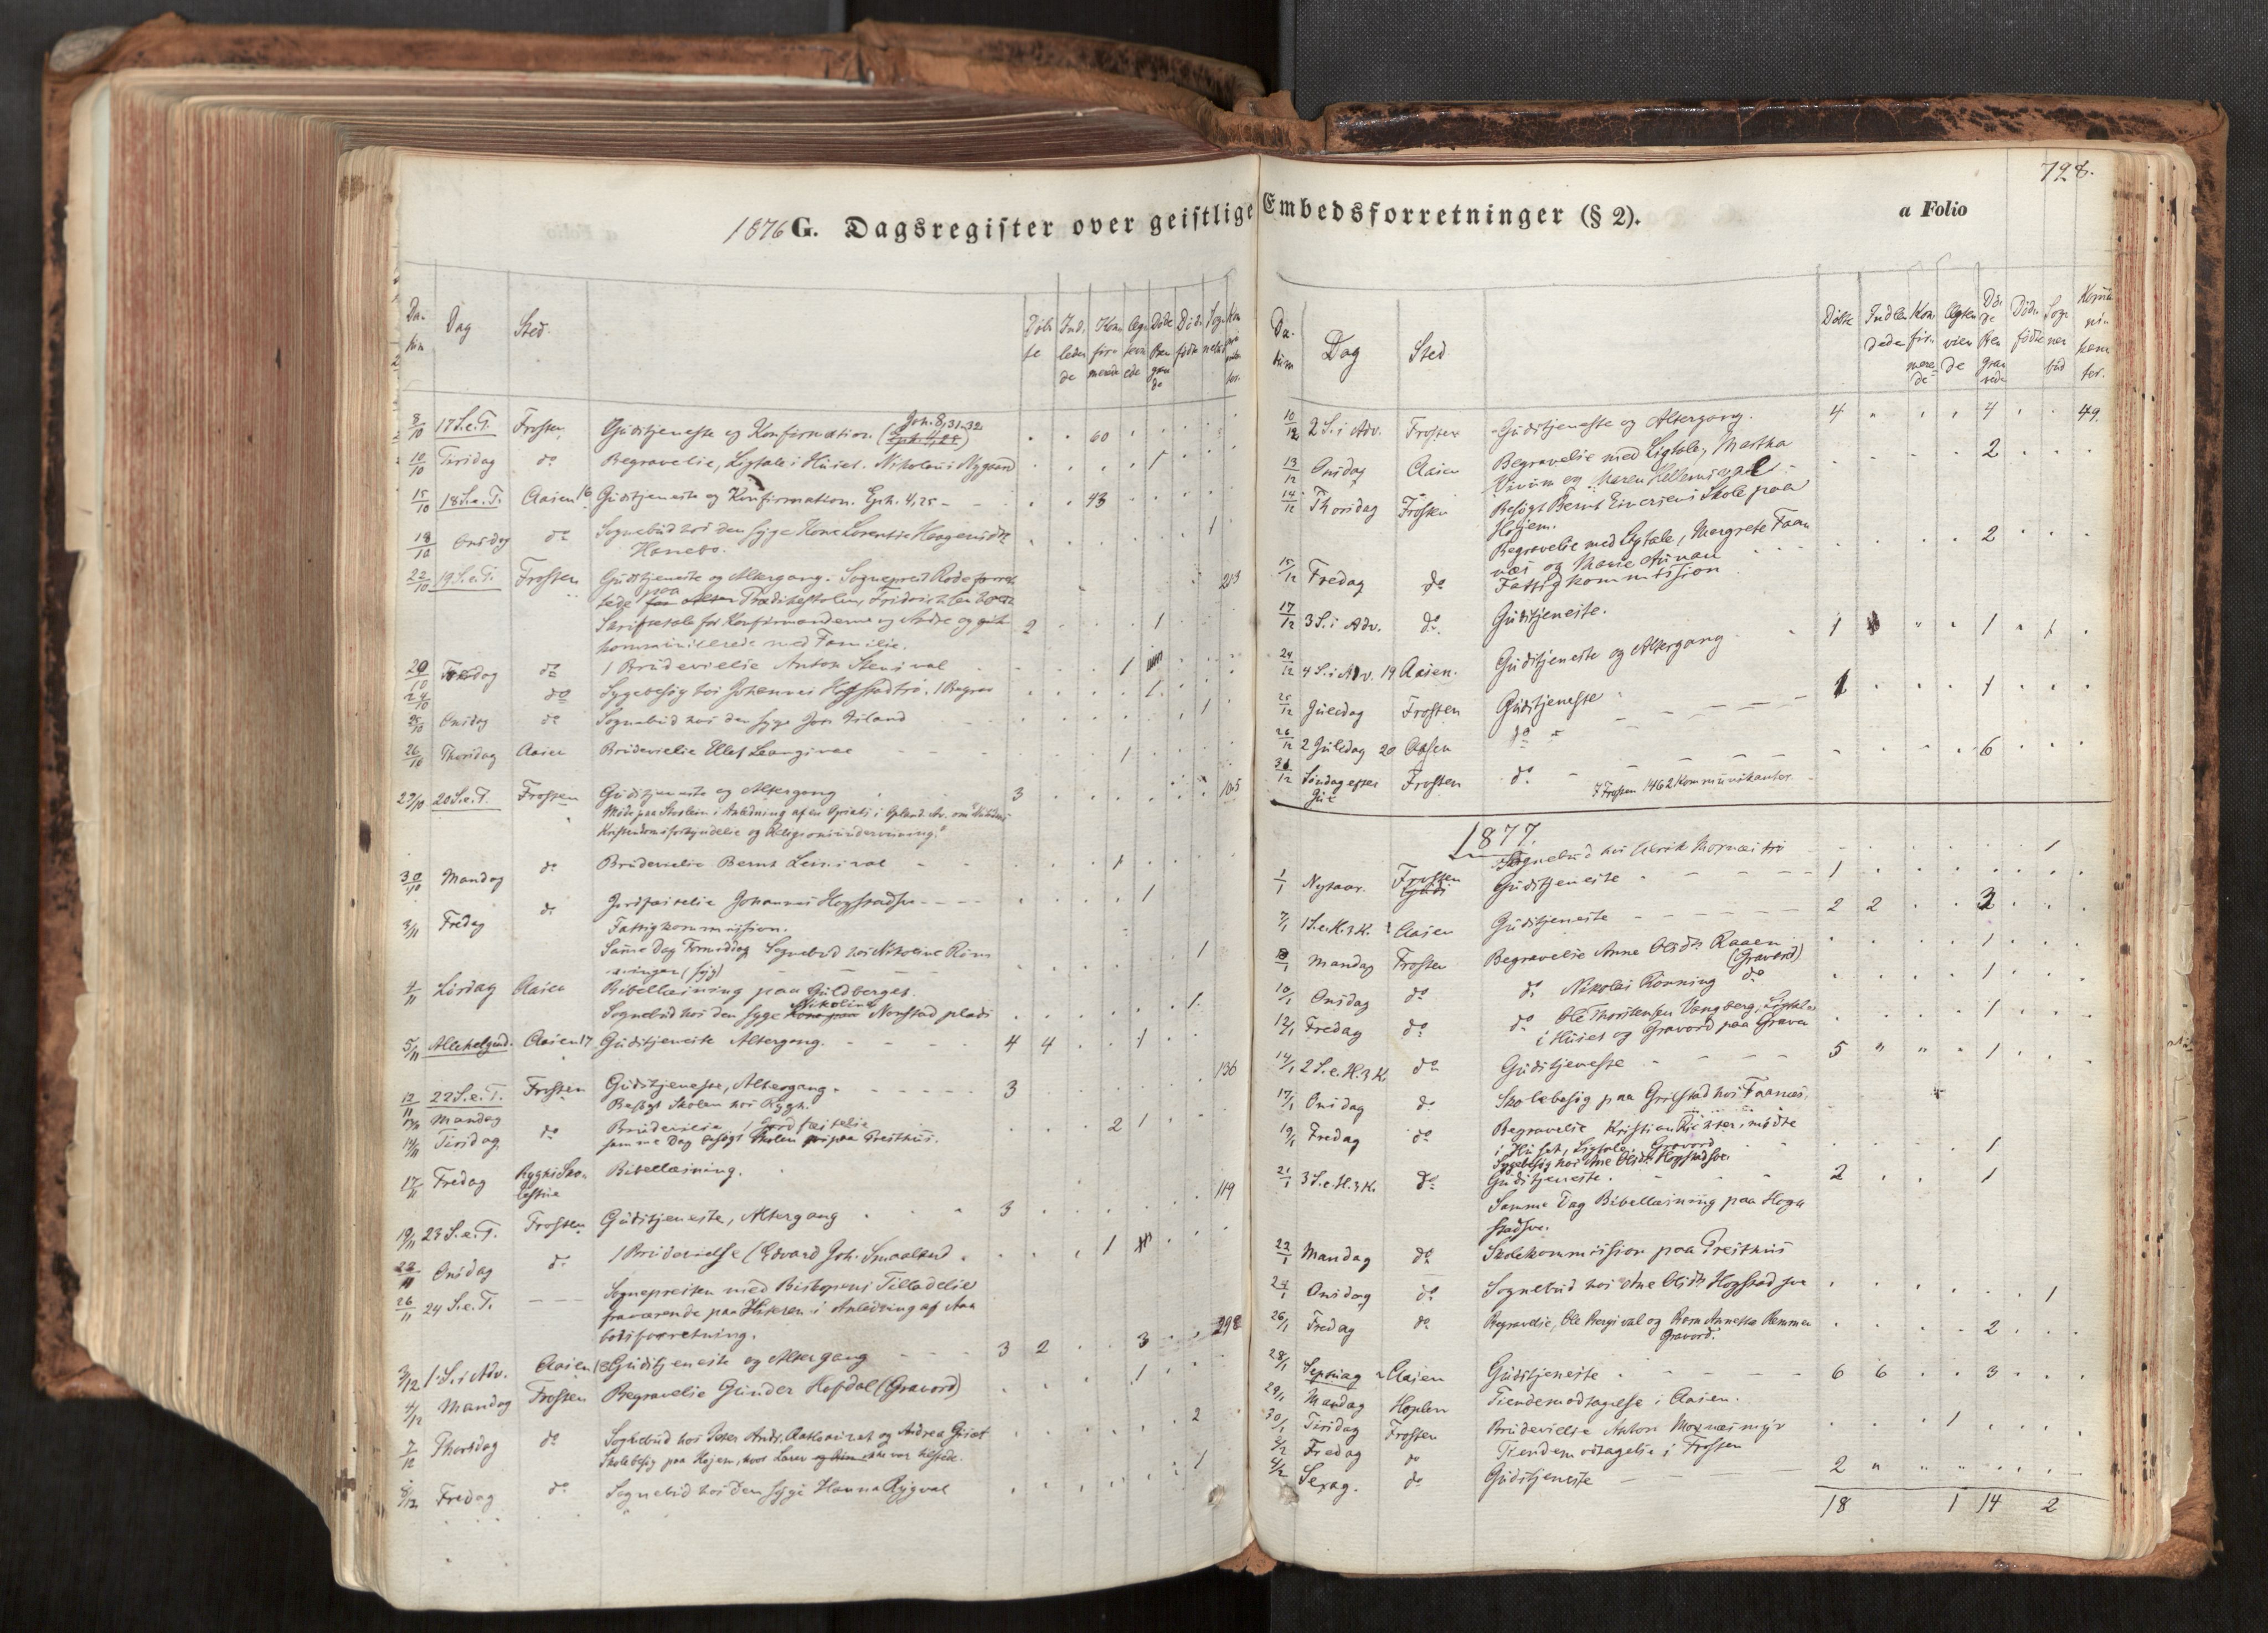 1876 G. Dagsregister over geistlige
Da-
tum
Dag
Sted.
Døb-
te
Ind-
lede
de
Kon-
fir-
merede
Døde
Be-
gra-
de
8/10 17 S.e.T. Frosten Gudstjeneste og Konfirmation. (Joh. 8,31-32) 60
10/10 Tirsdag do Begravelse, Ligtale i Huset. Nikolaus Nygaard 1
15/10 18 S.e.T. Aasen 16 Gudstjeneste og Konfirmation. Eph. 4,25 - 43
18/10 Onsdag do Sognebud hos den syge Kone Lorentse Haagensdtr 1
Hanebo.
22/10 19 S.e.T. Frosten Gudstjeneste og Altergang. Sognepræst Rode forret- 213
tede paa Prædikestolen,
Skriftetale for Konfirmanderne og Andre og 2 1
kommunicerede med Familie.
20/10 do 1 Brudevielse Anton Stensval 1
24/10 do Sygebesøg hos Johannes Hogstadtrø. 1 Begrav 1
25/10 Onsdag do Sognebud hos den syge Jon 1
26/10 Thorsdag Aasen Brudevielse Ellef Leangsval 1
29/10 20 S.e.T. Frosten Gudstjeneste og Altergang 3 105
Møde paa Skolen i Anledning af en Opsats i Opland. Av. om
Kristendomsforkyndelse og Religionsundervisning."
30/10 Mandag do Brudevielse Bernt Lensval 1
3/11 Fredag do Jordfæstelse Johannes Hogstadsve 1
Fattigkommission.
Samme Dag Formiddag Sognebud hos Nikoline Røm 1
(syg)
4/11 Lørdag Aasen Bibellæsning paa Guldberget.
Sognebud hos den syge Nikoline Norstad plads 1
5/11 Allehelgensd. Aasen 17 Gudstjeneste Altergang. 4 4 1
12/11 22 S.e.T. Frosten Gudstjeneste, Altergang. 3 136
Mandag Besøgt Skolen hos Rygh.
14/11 Tirsdag do Brudevielse, 1 Jordfæstelse 2 1
samme Dag besøgt Skolen paa Presthus.
17/11 Fredag Ryghs Sko- Bibellæsning.
lestue
19/11 23 S.e.T. Frosten Gudstjeneste, Altergang 3 119
22/11 Onsdag do 1 Brudevielse (Edvard Joh. Smaaland 1
26/11 24 S.e.T. Sognepresten med Biskopens Tilladelse
fraværende paa Hitteren i Anledning af Aa-
botsforretning.
3/12 1 S. i Adv. Aasen 18 Gudstjeneste og Altergang 3 2 3 292
4/12 Mandag Frosten Begravelse Gunder Hofdal (Gravord) 1
7/12 Thorsdag do Sognebud hos Peter Ands. og Andrea 2
Skolebesøg paa Højem, hvor Lærer ikke var tilstede.
8/12 Fredag do Sognebud hos den syge Hanna Rygval 1
Embedsforretninger (§ 2). a Folio 728.
Da-
tum
Dag
Sted
Døbte
Indle-
dede
Kon-
fir-
mere-
de
Ægte-
vie-
de
Dø-
de
Be-
gra-
vede
Død-
fødte
Sog-
ne-
bud
Kommu-
ni-
kan-
ter.
10/12 2 S. i Adv. Frosten Gudstjeneste og Altergang. 4 4 49
13/12 Onsdag Aasen Begravelse med Ligtale, Martha 2
Vinum og Maren
14/12 Thorsdag Frosten Besøgt Bernt Einersens Skole paa
Højem.
Begravelse med Ligtale, Margrete Faan- 2
næs og Marie Aunan
15/12 Fredag do Fattigkommission
17/12 3 S. i Adv. do Gudstjeneste. 1 1 1
24/12 4 S. i Adv. 19 Aasen. Gudstjeneste og Altergang
25/12 Juledag Frosten Gudstjeneste 1 1
26/12 2 Juledag 20 Aasen do
31/12 Søndag efter Frosten do 6
Jul
I Frosten 1462 Kommunikanter.
1877.
Sognebud hos Ulrik 1
1/1 Nytaar. Frosten Gudstjeneste 1
7/1 1 S.e.H.3K. 1 Aasen Gudstjeneste 2 2 3
8/1 Mandag Frosten Begravelse Anne Olsdtr Raaen 1
(Gravord)
10/1 Onsdag do do Nikolai Rønning do 1
12/1 Fredag do do Ole Thorstensen Vangberg, Ligtale 1
i Huset og Gravord paa Graven
14/1 2 S.e.H.3K. do Gudstjeneste 5 1
17/1 Onsdag do Skolebesøg paa Grilstad hos Faanæs.
19/1 Fredag do Begravelse Kristian
i Huset, Ligtale, Gravord 1
Sygebesøg hos Ane Olsdtr Hogstadsve.
21/1 3 S.e.H.3K. do Gudstjeneste. 2 1
Samme Dag Bibellæsning paa Hog-
stadsve.
22/1 Mandag do Skolekommission paa Presthus
24/1 Onsdag do Sognebud hos Ane Olsdtr Hogstadsve 1
26/1 Fredag do Begravelse, Ole Bergsval og 2
Gravord.
28/1 Septuag 2 Aasen Gudstjeneste 6 6 3
29/1 Mandag Hoplen Tiendemodtagelse i Aasen.
30/1 Tirsdag Frosten Brudevielse Anton 1
2/2 Fredag do Tiendemodtagelse i Frosten
4/2 Sexag. do Gudstjeneste 2
18 1 14 2